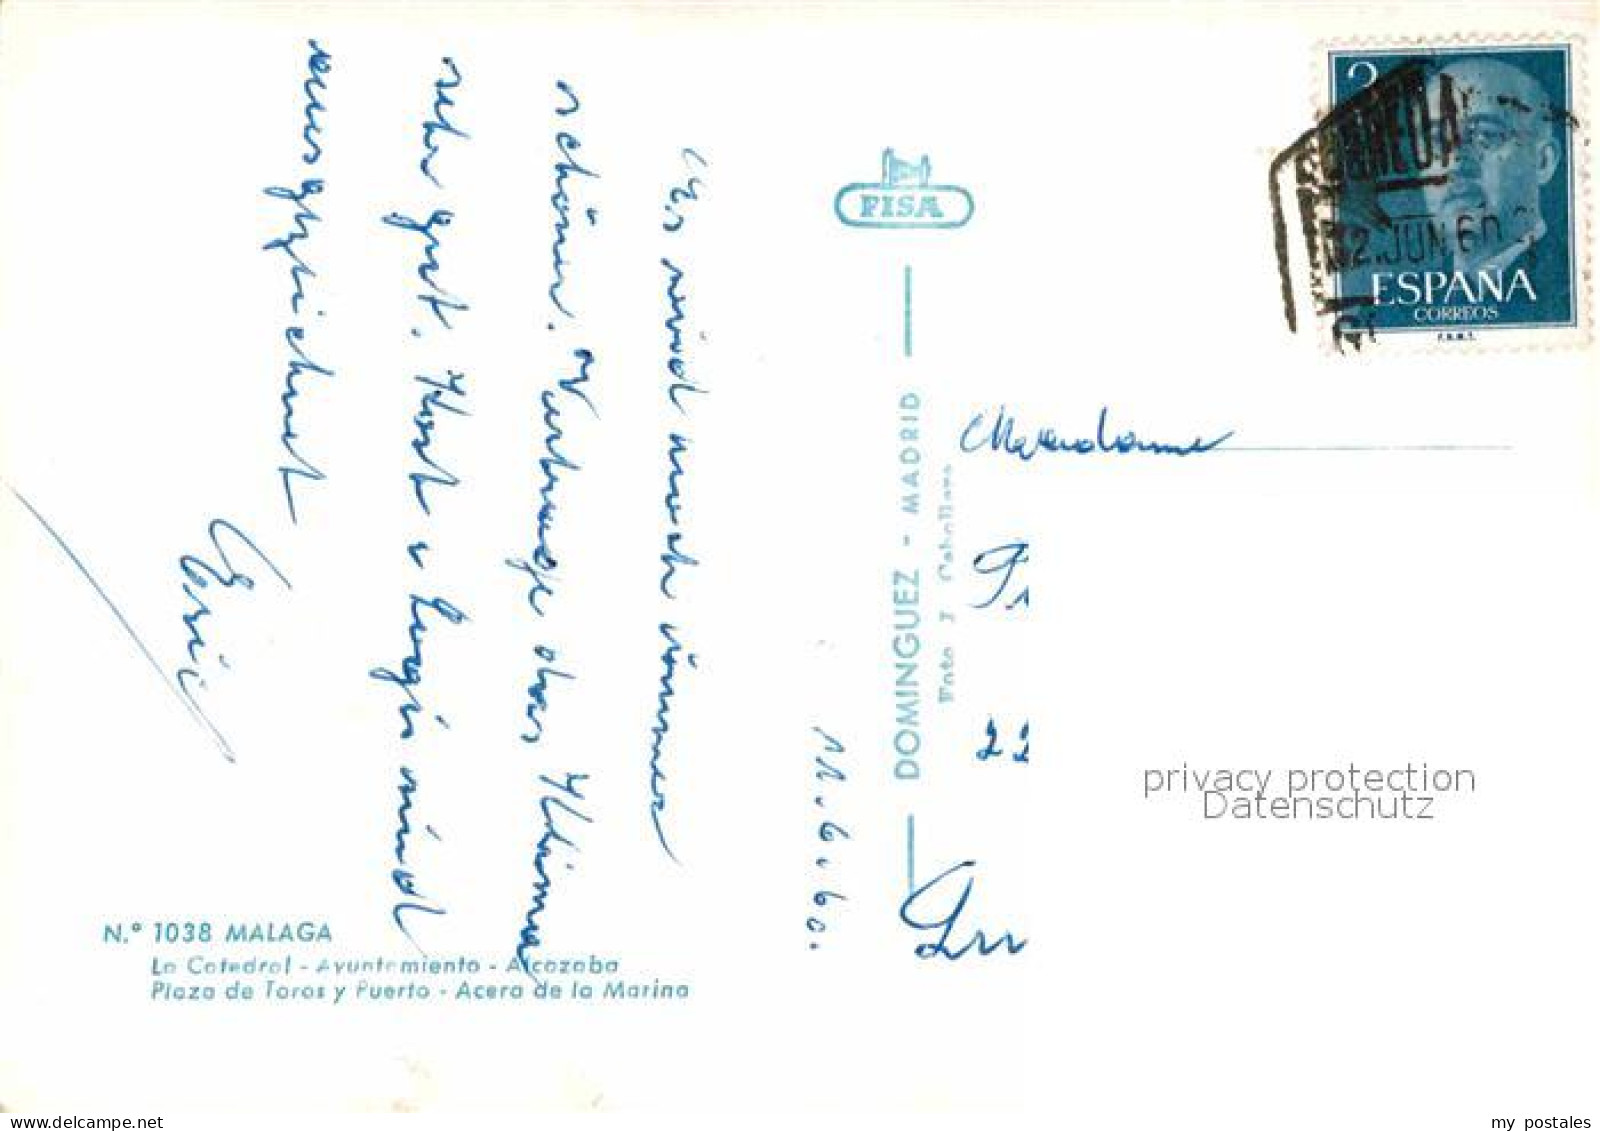 Es wird noch immer
schöner. Vertrage das Klima
sehr gut. Kost u Logis sind
ausgezeichnet
Eric
11.6.60.
N.º 1038 MALAGA
La Catedral - Ayuntamiento - Alcazaba
Plaza de Toros y Puerto - Acera de la Marina
FISA
DOMINGUEZ - MADRID
2
12.JUN 60
ESPAÑA
CORREOS
F.N.M.T.
Madame
22
privacy protection
Datenschutz
www.delcampe.net
my_postales